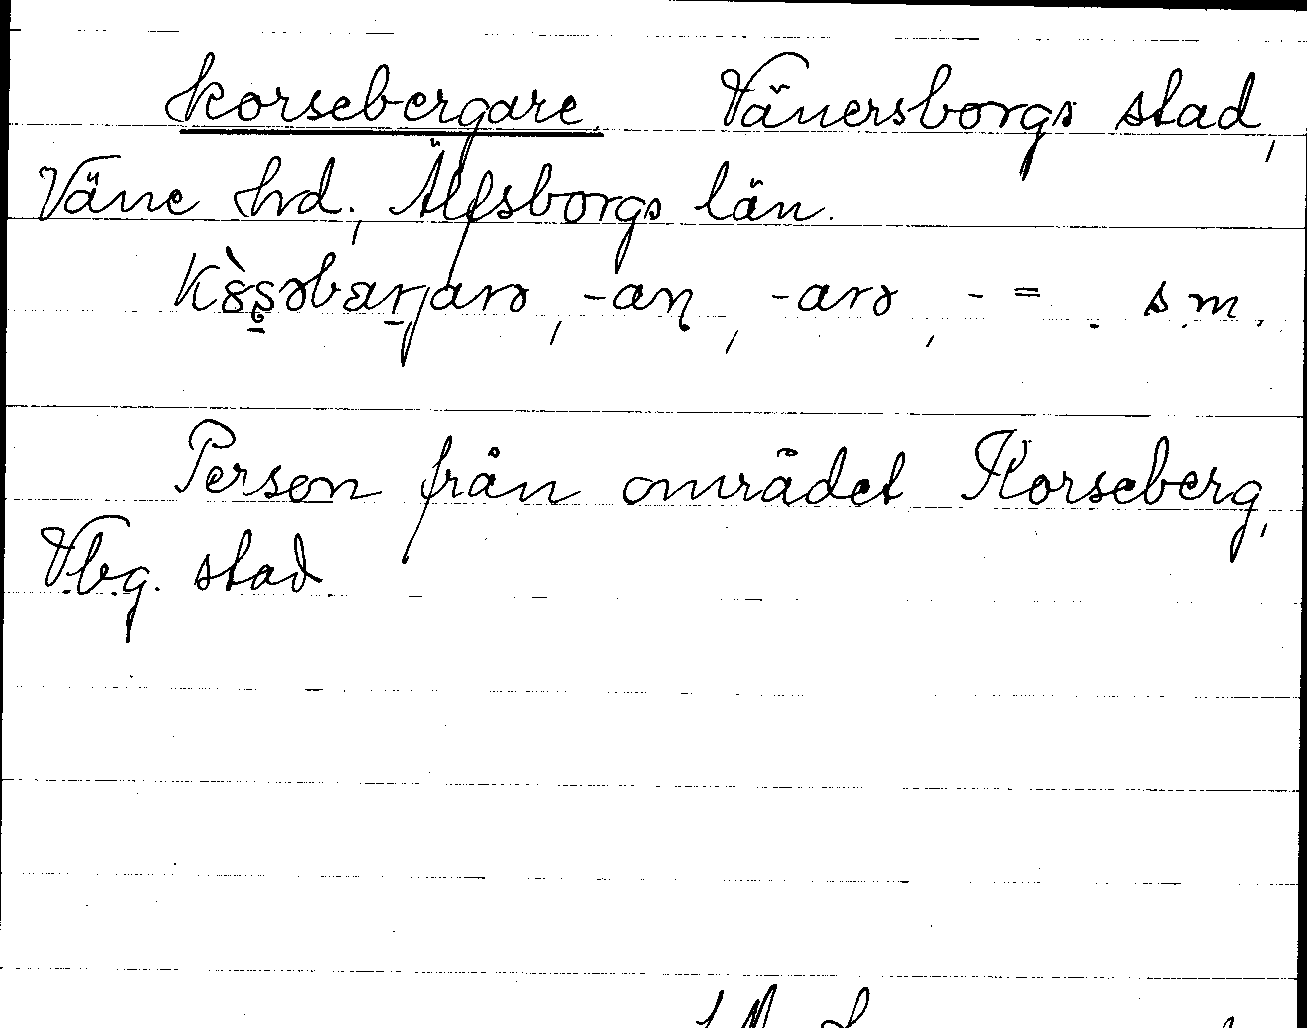 korsebergare. Vänersborgs stad,
Väne hrd., Älfsborgs län.
-an, -arə, - = . s.m.
Person från området Korseberg,
Vbg. stad.